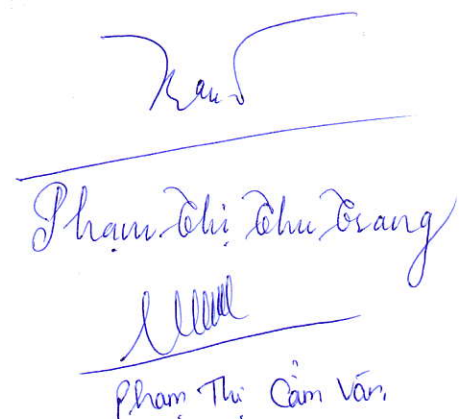 Phạm Thị Thu Trang
Phạm Thị Cẩm Vân.